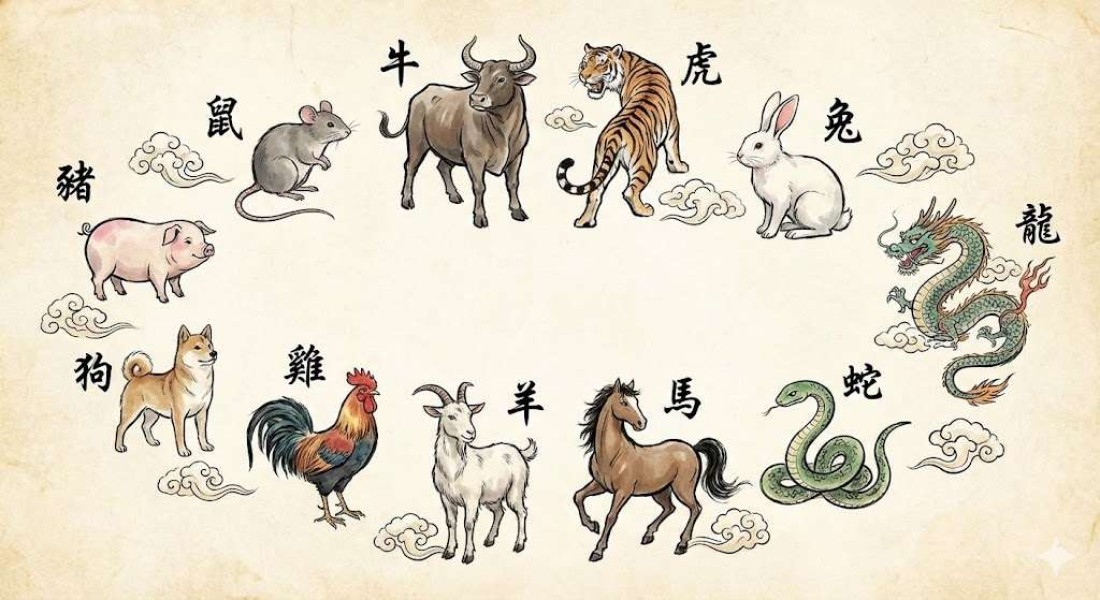 鼠
牛
虎
兔
龍
蛇
馬
羊
雞
狗
豬